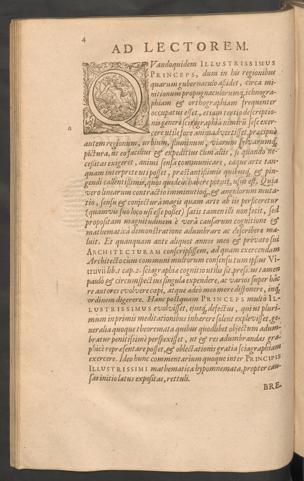 4
AD LECTOREM.
QVandoquidem ILLUSTRISSIMUS
PRINCEPS, dum in his regionibus
quarum gubernaculo assidet, circa mu-
nitionum propugnaculorumq, ichnogra-
phiam & orthographiam frequenter
occupatus esset, etiam
in genere sciagraphia nimirum sese exer-
cere utile fore animadvertisset, præcipue
autem regionum, urbium, fluminum, viarum sylvarumq,
pictura, ut ex facilius & expeditius cum aliis, si quando ne-
cessitas exigeret, animi sensa communicare, captare arte tan-
quam interprete uti posset, præstantissimis quibusq, & pin-
gendi callentissimis, quos quidem habere potuit, usus est. Quia
vero linearum contractio imminutioq, & angulorum mutatio,
sensu & conjectura magis quam arte ab iis perficeretur
(quamvis suo loco esse posset) satis tamen illi non fecit, sed
propositam magnitudinem è vera causarum cognitione &
mathematica demonstratione adumbrare ac describere ma-
luit. Et quanquam ante aliquot annos meo & privato sui
ARCHITECTURAM conscripsissem, ad quam exercendam
Architecto cum communi multorum consensu tum ipsius Vi-
truvii lib. 1 cap. 2. sciagraphia cognitio utilis sit, pressius tamen
paulo & circumspectius singula expendere, ac varios super hac
re autores evolvere cœpi, atque adeo meo more disponere, inq,
ordinem digerere. Hanc postquam PRINCEPS multo IL-
LUSTRISSIMUS evolvisset, ejusq, defectus, qui us pluri-
mum in primis meditationibus inhærere solent explevisset, ge-
neralia quoque theoremata quibus quodlibet objectum adum-
bratur penitissimè perspexisset, ut & res adumbrandas gra-
phicè repræsentare posset, & oblectationis gratia sciagraphiam
exercere. Ideo hunc commentarium quoque inter PRINCIPIS
ILLUSTRISSIMI mathematica hypomnemata, propter cau-
sas initio latius expositas, retuli.
BRE-